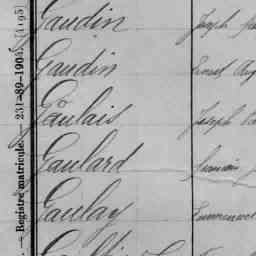 Gaudin Joseph
Gaudin Ernest Aug
Gaulais Joseph
Gaulard Germain
Gaulay Emmanuel
— Registre matricule. — 231-89-1904. [4195]